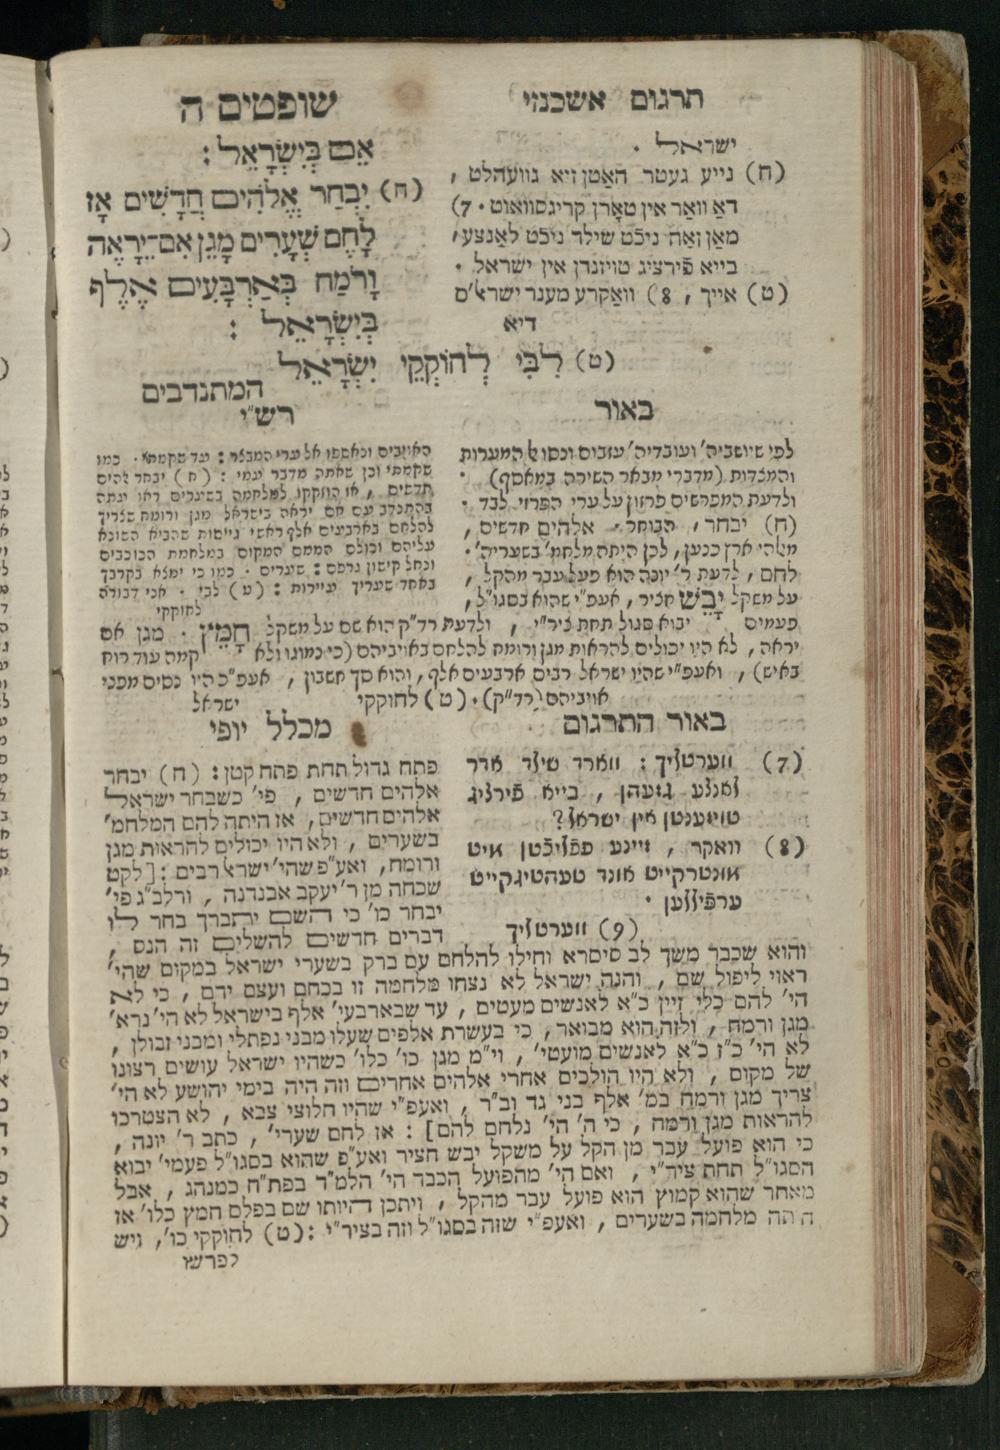 תרגום אשכנזי
ישראל .
(ח) נייע געטר האַטן זיא גוועהלט ,
דאַ וואַר אין טאָרן קריגסוואוט . 7)
מאַן זאַה ניכֿט שילד ניכֿט לאַנצע ,
בייא פֿירציג טויזנדן אין ישראל .
(ט) אייך , 8) וואַקרע מענר ישרא'ס
דיא
שופטים ה
אֵם בְּיִשְׂרָאֵל :
(ח) יִבְחַר אֱלֹהִים חֲדָשִׁים אָז
לָחֶם שְׁעָרִים מָגֵן אִם־יֵרָאֶה
וָרֹמַח בְּאַרְבָּעִים אֶלֶף
בְּיִשְׂרָאֵל :
(ט) לִבִּי לְחוֹקְקֵי יִשְׂרָאֵל
המתנדבים
באור
לפי שיושביה' ועובדיה' עזבום ונכסו למערות
והמצדות (מדברי מבאר השירה במאסף) .
ולדעת המפרשים פרזון על ערי הפרזי לבד .
(ח) יבחר , הבוחר . אלהים חדשים ,
מאלהי ארץ כנען , לכן היתה מלחמ' בשעריה' .
לחם , לדעת ר' יונה הוא פעל עבר מהקל ,
על משקל יָבֵשׁ חציר , אעפ"י שהוא בסגו"ל ,
פעמים יבוא סגול תחת צירי , ולדעת רד"ק הוא שם על משקל חָמֵץ . מגן אם
יראה , לא היו יכולים להראות מגן ורומח להלחם באויביהם (כי כמוגו ולא קמה עוד רוח
באיש) , ואעפ"י שהיו ישראל רבים ארבעים אלף , והוא סך חשבון , אעפ"כ היו נסים מפני
אויביהם (רד"ק) . (ט) לחוקקי ישראל
רש"י
האויבים ונאספו אל ערי המבצר : עד שקמתי . כמו
שקמתי וכן שאתה מדבר עמי : (ח) יבחר להים
חדשים , אז הוזקקו למלחמה בשערים ראו עתה
בהתנדב עם אם יראה בישראל מגן ורומח שצריך
להלחם בארבעים אלף ראשי גייסות שהביא השונא
עליהם וכולם המסם המקום במלחמת הכוכבים
ונחל קישון גרפם : שערים . כמו כי ימצא בקרבך
באחד שעריך עיירות : (ט) לבי . אני דבורה
לחוקקי
באור התרגום
(7) ווערטליך : ווארד שילד אדר
לאנצע געזעהן , בייא פֿירציג
טויזענטן אין ישראל ?
(8) וואקר , זיינע פפליכֿטן מיט
מונטרקייט אונד טעהטיגקייט
ערפֿיללען .
(9) ווערטליך
מכלל יופי
פתח גדול תחת פתח קטן : (ח) יבחר
אלהים חדשים , פי' כשבחר ישראל
אלהים חדשים , אז היתה להם המלחמ'
בשערים , ולא היו יכולים להראות מגן
ורומח , ואע"פ שהי' ישרא' רבים : [לקט
שכחה מן ר' יעקב אבנדנה , ורלב"ג פי'
יבחר כו' כי השם יתברך בחר לו
דברים חדשים להשלים זה הנס ,
והוא שכבר משך לב סיסרא וחילו להלחם עם ברק בשערי ישראל במקום שהי'
ראוי ליפול שם , והנה ישראל לא נצחו מלחמה זו בכחם ועצם ידם , כי לא
הי' להם כלי זיין כ"א לאנשים מעטים , עד שבארבעי' אלף בישראל לא הי' נרא'
מגן ורמח , ולזה הוא מבואר , כי בעשרת אלפים שעלו מבני נפתלי ומבני זבולן ,
לא הי' כ"ז כ"א לאנשים מועטי' , וי"מ מגן כו' כלו' כשהיו ישראל עושים רצונו
של מקום , ולא היו הולכים אחרי אלהים אחרים וזה היה בימי יהושע לא הי'
צריך מגן ורמח במ' אלף בני גד וב"ר , ואעפ"י שהיו חלוצי צבא , לא הצטרכו
להראות מגן ורמח , כי ה' הי' נלחם להם] : אז לחם שערי' , כתב ר' יונה ,
כי הוא פועל עבר מן הקל על משקל יבש חציר ואע"פ שהוא בסגו"ל פעמי' יבוא
הסגו"ל תחת ציר"י , ואם הי' מהפועל הכבד הי' הלמ"ד בפת"ח כמנהג , אבל
מאחר שהוא קמוץ הוא פועל עבר מהקל , ויתכן היותו שם בפלס חמץ כלו' אז
היתה מלחמה בשערים , ואעפ"י שזה בסגו"ל וזה בציר"י : (ט) לחוקקי כו' , ויש
לפרש